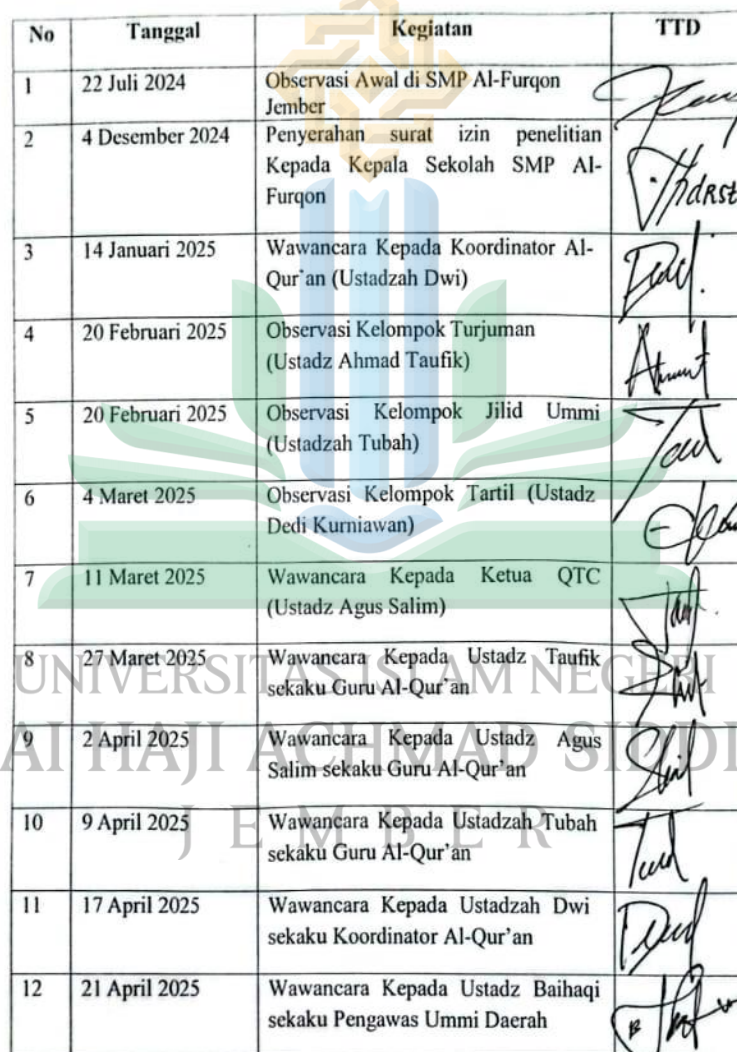 No Tanggal Kegiatan TTD
1 22 Juli 2024 Observasi Awal di SMP Al-Furqon
Jember
2 4 Desember 2024 Penyerahan surat izin penelitian
Kepada Kepala Sekolah SMP Al-
Furqon
3 14 Januari 2025 Wawancara Kepada Koordinator Al-
Qur`an (Ustadzah Dwi)
4 20 Februari 2025 Observasi Kelompok Turjuman
(Ustadz Ahmad Taufik)
5 20 Februari 2025 Observasi Kelompok Jilid Ummi
(Ustadzah Tubah)
6 4 Maret 2025 Observasi Kelompok Tartil (Ustadz
Dedi Kurniawan)
7 11 Maret 2025 Wawancara Kepada Ketua QTC
(Ustadz Agus Salim)
8 27 Maret 2025 Wawancara Kepada Ustadz Taufik
sekaku Guru Al-Qur'an
UNIVERSITAS ISLAM NEGERI
9 2 April 2025 Wawancara Kepada Ustadz Agus
Salim sekaku Guru Al-Qur'an
AI HAJI ACHMAD SIDDI
10 9 April 2025 Wawancara Kepada Ustadzah Tubah
sekaku Guru Al-Qur'an
JEMBER
11 17 April 2025 Wawancara Kepada Ustadzah Dwi
sekaku Koordinator Al-Qur'an
12 21 April 2025 Wawancara Kepada Ustadz Baihaqi
sekaku Pengawas Ummi Daerah